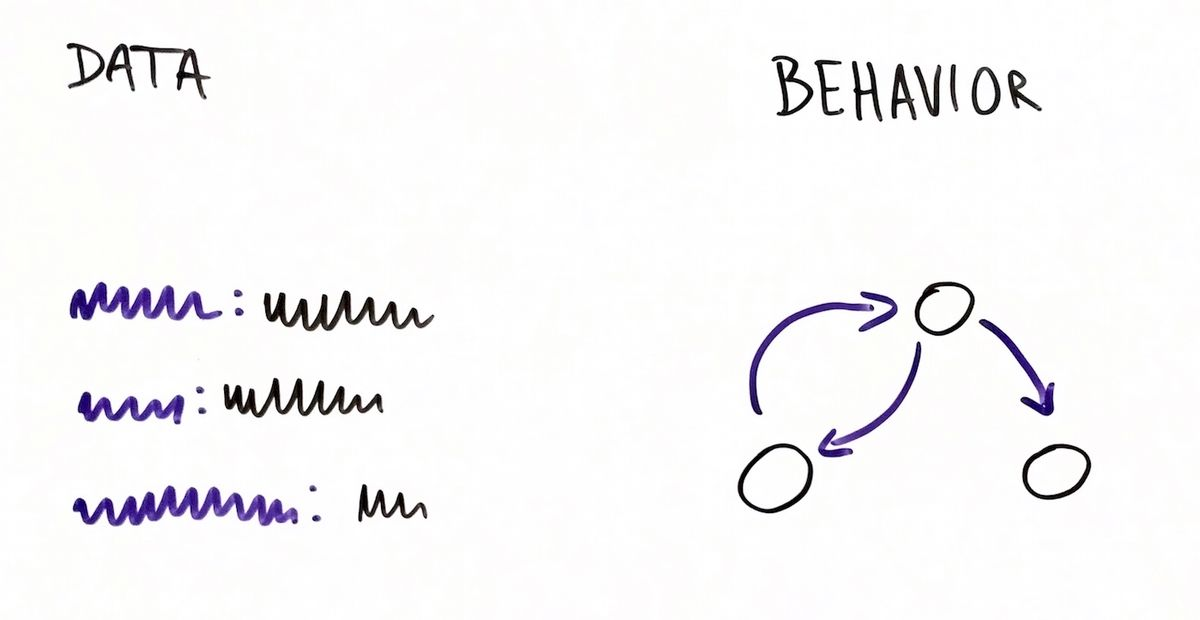 DATA
BEHAVIOR